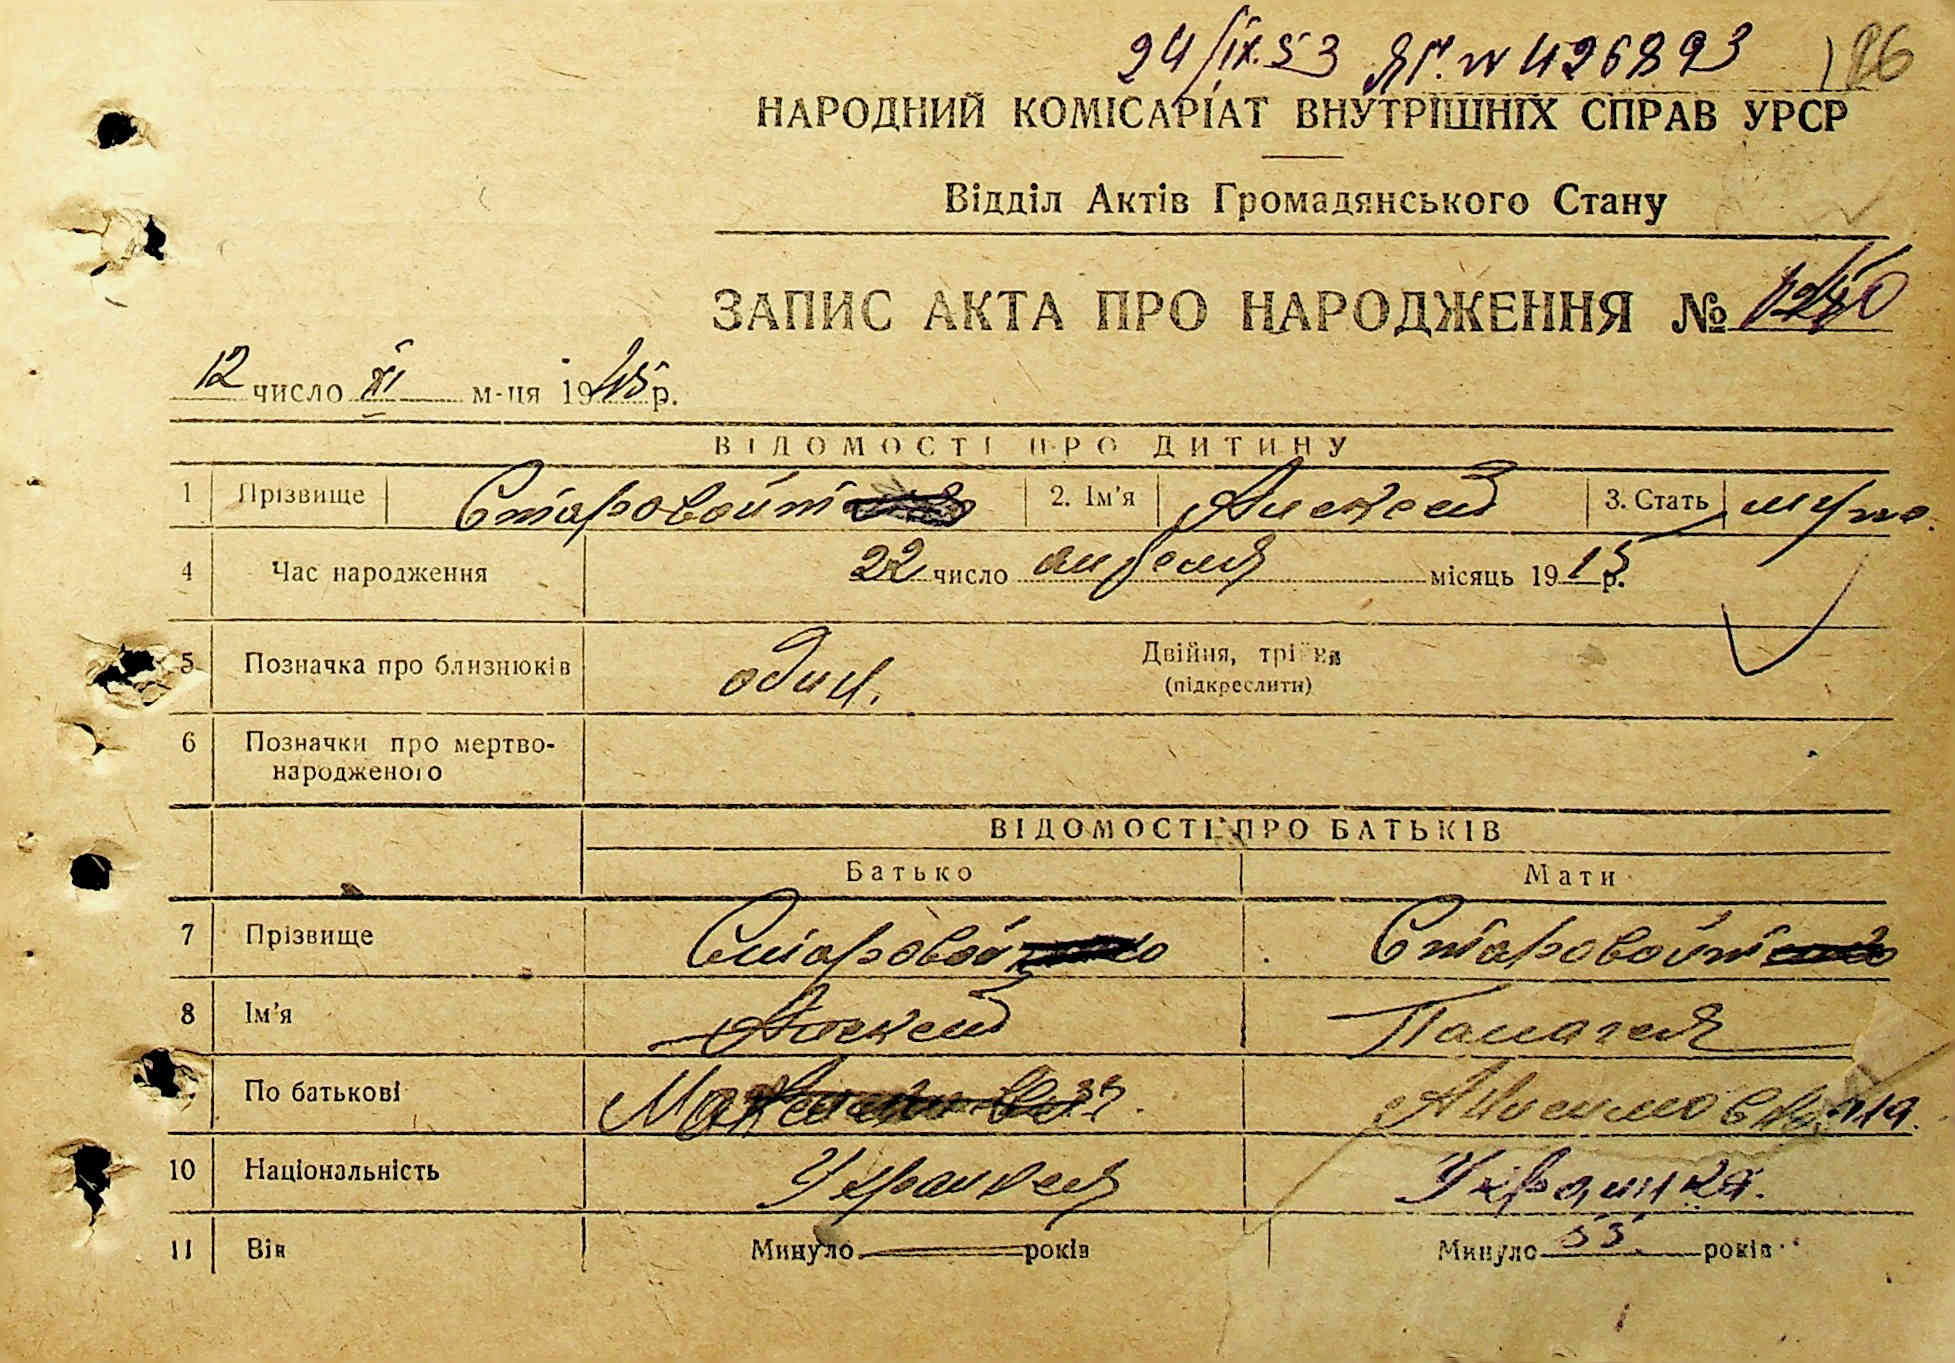 24/IX.53 ЯГ. N 426893 186
НАРОДНИЙ КОМІСАРІАТ ВНУТРІШНІХ СПРАВ УРСР
Відділ Актів Громадянського Стану
ЗАПИС АКТА ПРО НАРОДЖЕННЯ №
12 число XI м-ця 1945 р.
ВІДОМОСТІ ПРО ДИТИНУ
1 Прізвище Старовойт 2. Ім'я Алексей 3. Стать муж.
4 Час народження 22 число апреля місяць 1915 р.
5 Позначка про близнюків один. Двійня, трійня
(підкреслити)
6 Позначки про мертво-
народженого
ВІДОМОСТІ ПРО БАТЬКІВ
Батько Мати
7 Прізвище Старовойт Старовойт
8 Ім'я Алексей Палагея
По батькові
10 Національність Украинец Украинка.
11 Вік Минуло років Минуло 55 років